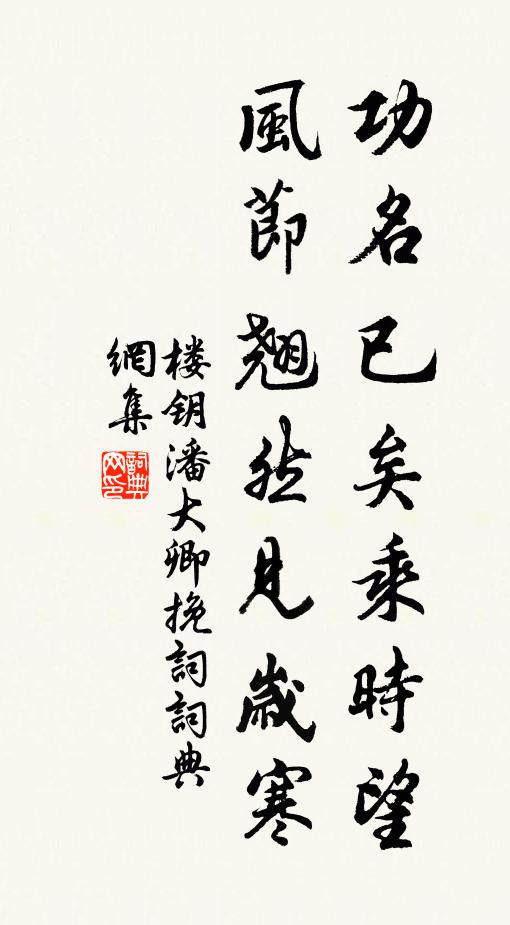 功名已矣乘時望
風節翹然見歲寒
楼钥潘大卿挽詞詞典
網集
詞典网印